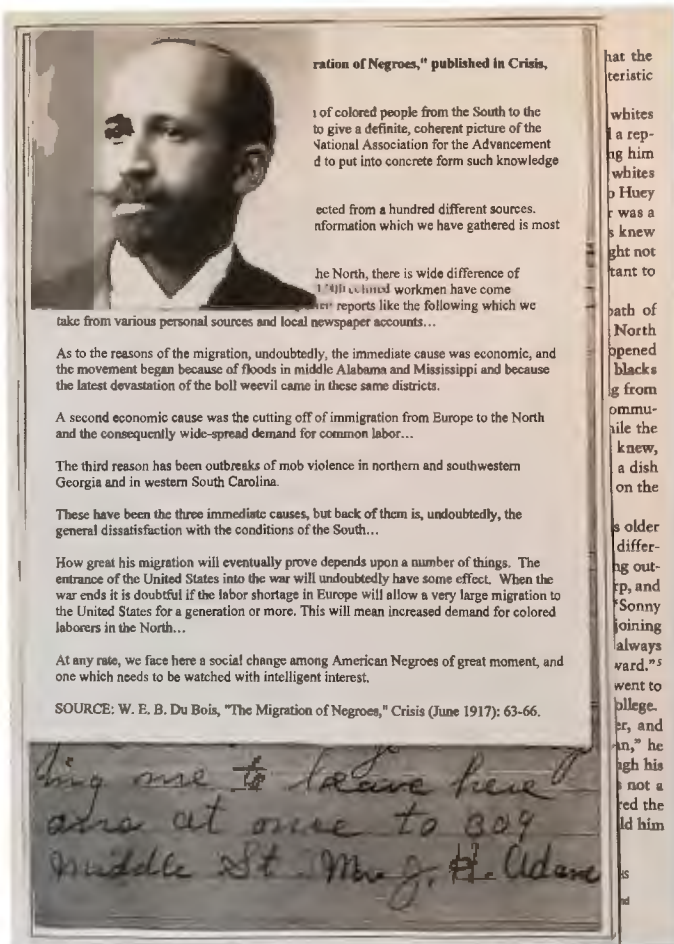 ration of Negroes," published in Crisis,
of colored people from the South to the
to give a definite, coherent picture of the
National Association for the Advancement
d to put into concrete form such knowledge
ected from a hundred different sources.
nformation which we have gathered is most
he North, there is wide difference of
workmen have come
reports like the following which we
take from various personal sources and local newspaper accounts...
As to the reasons of the migration, undoubtedly, the immediate cause was economic, and
the movement began because of floods in middle Alabama and Mississippi and because
the latest devastation of the boll weevil came in these same districts.
A second economic cause was the cutting off of immigration from Europe to the North
and the consequently wide-spread demand for common labor...
The third reason has been outbreaks of mob violence in northern and southwestern
Georgia and in western South Carolina.
These have been the three immediate causes, but back of them is, undoubtedly, the
general dissatisfaction with the conditions of the South...
How great his migration will eventually prove depends upon a number of things. The
entrance of the United States into the war will undoubtedly have some effect. When the
war ends it is doubtful if the labor shortage in Europe will allow a very large migration to
the United States for a generation or more. This will mean increased demand for colored
laborers in the North...
At any rate, we face here a social change among American Negroes of great moment, and
one which needs to be watched with intelligent interest.
SOURCE: W. E. B. Du Bois, "The Migration of Negroes," Crisis (June 1917): 63-66.
ing me to leave here
and at once to 309
Middle St Mr J. H. Adams
hat the
teristic
whites
a rep-
ng him
whites
o Huey
r was a
s knew
ght not
tant to
path of
North
opened
blacks
g from
ommu-
hile the
knew,
a dish
on the
s older
differ-
ng out-
rp, and
"Sonny
joining
always
ward."5
went to
ollege.
er, and
an," he
ugh his
s not a
red the
ld him